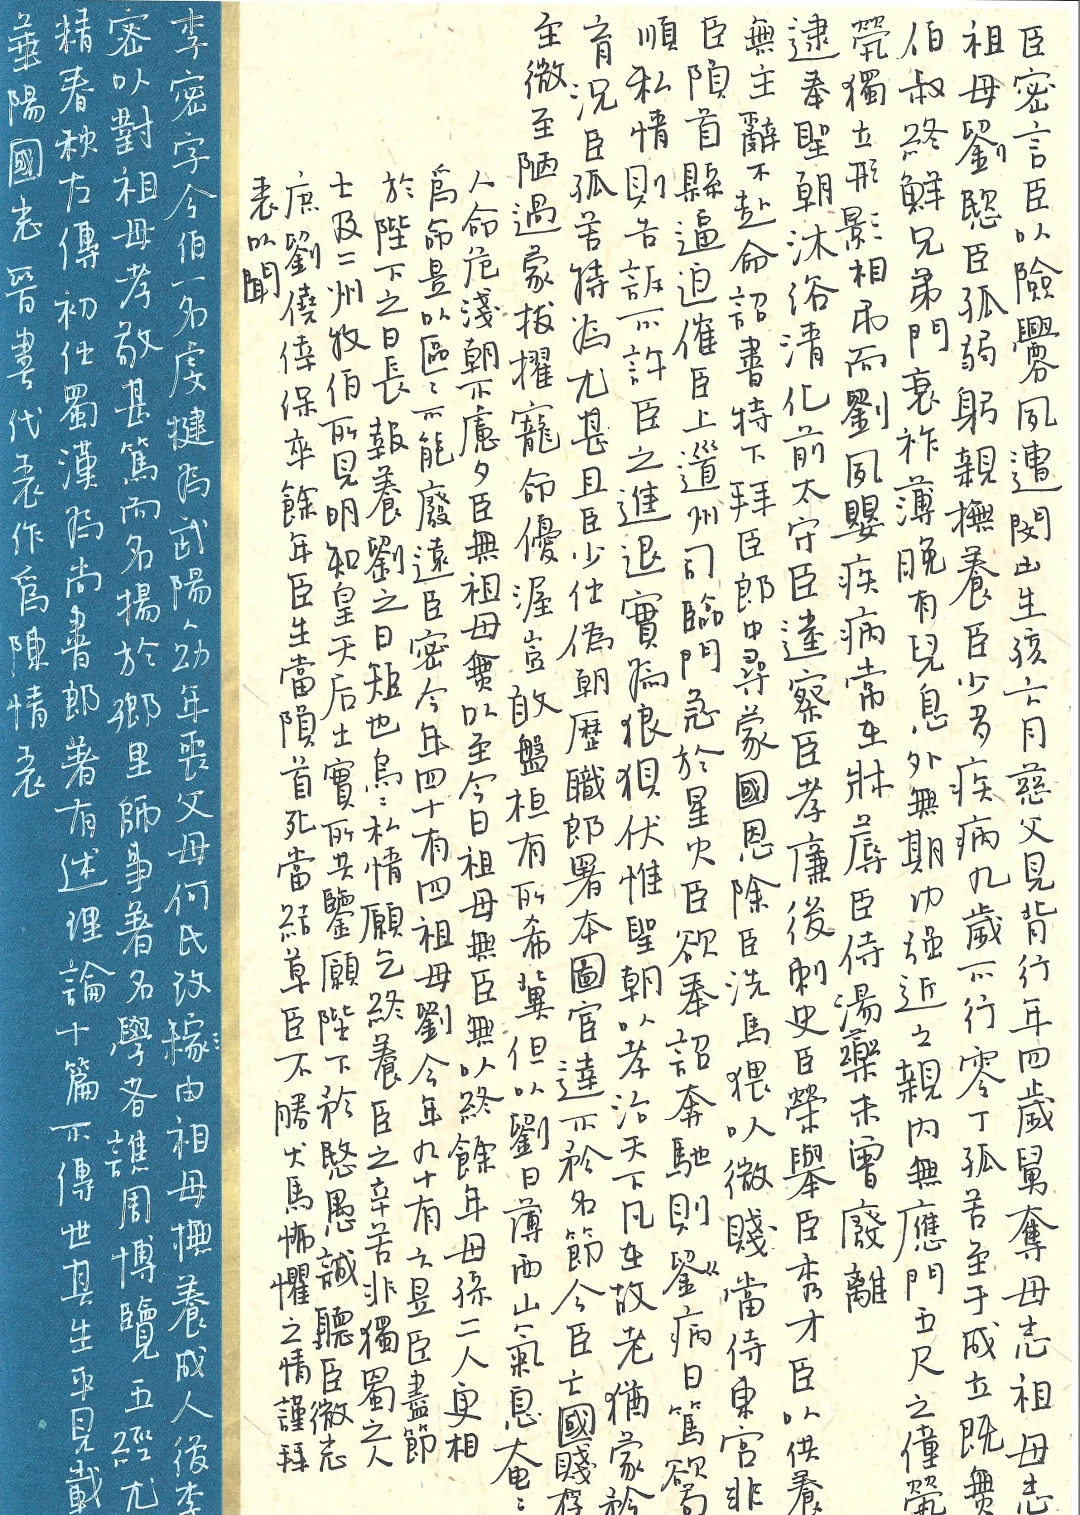 臣密言臣以險釁夙遭閔凶生孩六月慈父見背行年四歲舅奪母志祖母志
祖母劉愍臣孤弱躬親撫養臣少多疾病九歲不行零丁孤苦至于成立既無
伯叔終鮮兄弟門衰祚薄晚有兒息外無期功强近之親內無應門五尺之僮煢
煢獨立形影相弔而劉夙嬰疾病常在牀蓐臣侍湯藥未曾廢離
逮奉聖朝沐浴清化前太守臣逵察臣孝廉後刺史臣榮舉臣秀才臣以供養
無主辭不赴命詔書特下拜臣郎中尋蒙國恩除臣洗馬猥以微賤當侍東宮非
臣隕首縣逼迫催臣上道州司臨門急於星火臣欲奉詔奔馳則劉病日篤欲苟
順私情則告訴不許臣之進退實為狼狽伏惟聖朝以孝治天下凡在故老猶蒙矜
育況臣孤苦特為尤甚且臣少仕偽朝歷職郎署本圖宦達不矜名節今臣亡國賤俘
至微至陋過蒙拔擢寵命優渥豈敢盤桓有所希冀但以劉日薄西山氣息奄〻
人命危淺朝不慮夕臣無祖母無以至今日祖母無臣無以終餘年母孫二人更相
為命是以區〻不能廢遠臣密今年四十有四祖母劉今年九十有六是臣盡節
於陛下之日長報養劉之日短也烏〻私情願乞終養臣之辛苦非獨蜀之人
士及二州牧伯所見明知皇天后土實所共鑒願陛下矜愍愚誠聽臣微志
庶劉僥倖保卒餘年臣生當隕首死當結草臣不勝犬馬怖懼之情謹拜
表以聞
李密字令伯一名虔犍為武陽人幼年喪父母何氏改嫁由祖母撫養成人後李
密以對祖母孝敬甚篤而名揚於鄉里師事著名學者譙周博覽五經尤
精春秋左傳初仕蜀漢為尚書郎著有述理論十篇不傳世其生平見載
華陽國志晉書代表作為陳情表